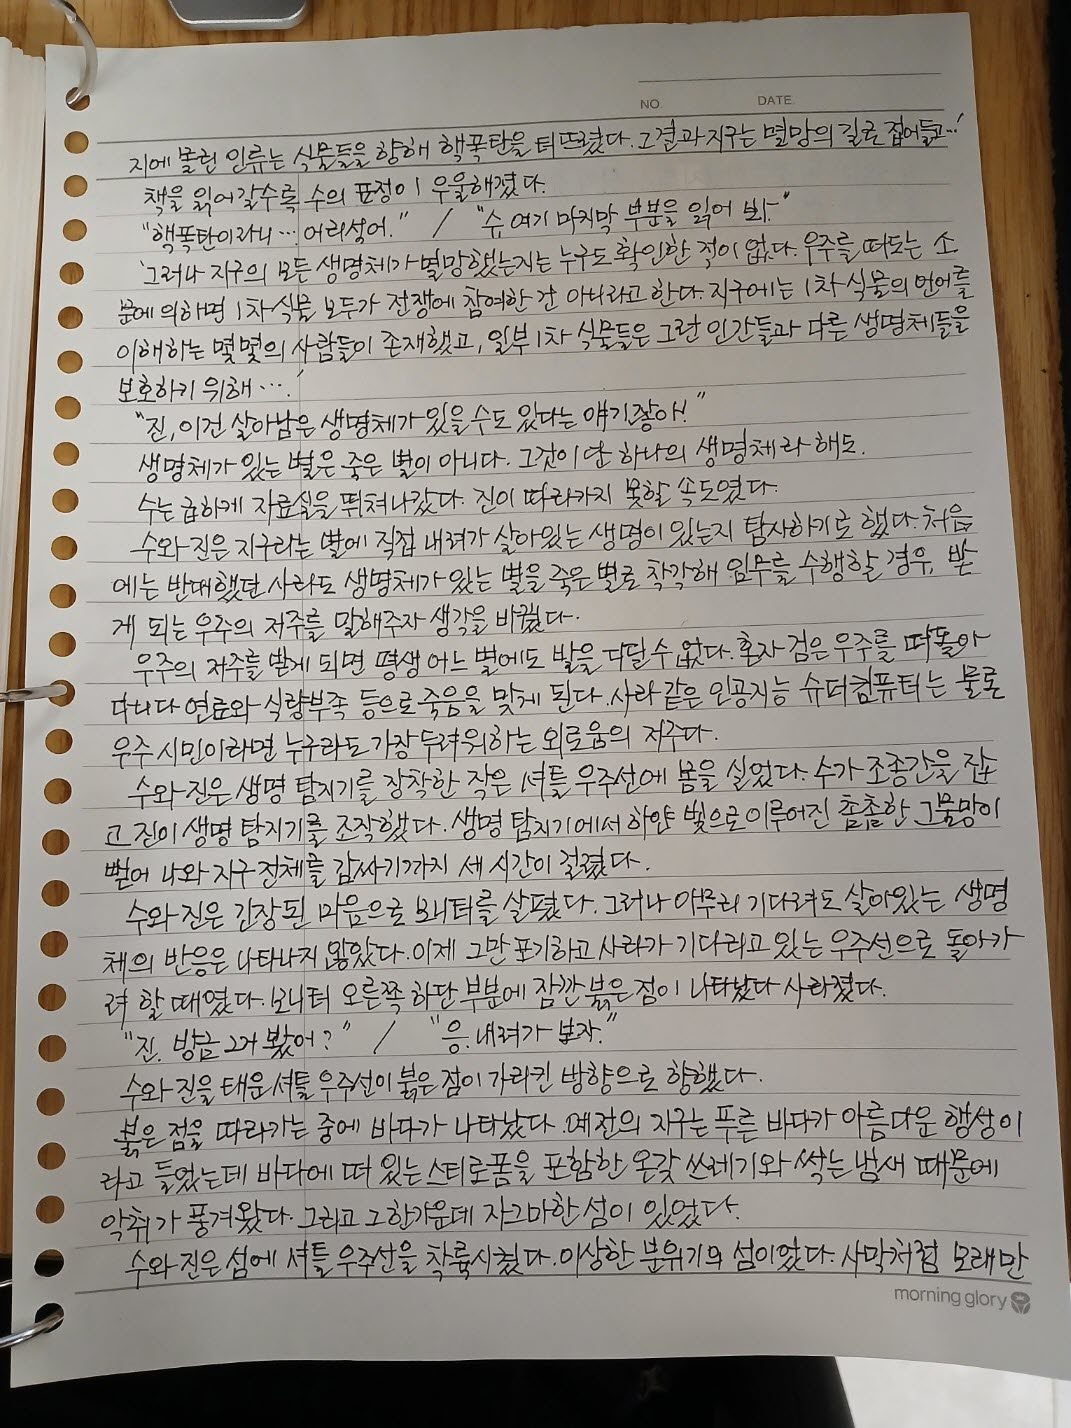 NO. DATE.
지에 몰린 인류는 식물들을 향해 핵폭탄을 터뜨렸다. 그 결과 지구는 멸망의 길로 접어들고…'
책을 읽어 갈수록 수의 표정이 우울해졌다.
"핵폭탄이라니… 어리석어." / "수, 여기 마지막 부분을 읽어 봐."
'그러나 지구의 모든 생명체가 멸망했는지는 누구도 확인한 적이 없다. 우주를 떠도는 소
문에 의하면 1차 식물 모두가 전쟁에 참여한 건 아니라고 한다. 지구에는 1차 식물의 언어를
이해하는 몇몇의 사람들이 존재했고, 일부 1차 식물들은 그런 인간들과 다른 생명체들을
보호하기 위해….'
"진, 이건 살아남은 생명체가 있을 수도 있다는 얘기잖아!"
생명체가 있는 별은 죽은 별이 아니다. 그것이 단 하나의 생명체라 해도.
수는 급하게 자료실을 뛰쳐나갔다. 진이 따라가지 못할 속도였다.
수와 진은 지구라는 별에 직접 내려가 살아있는 생명이 있는지 탐사하기로 했다. 처음
에는 반대했던 사라도 생명체가 있는 별을 죽은 별로 착각해 임무를 수행할 경우, 받
게 되는 우주의 저주를 말해주자 생각을 바꿨다.
우주의 저주를 받게 되면 평생 어느 별에도 발을 디딜 수 없다. 혼자 검은 우주를 떠돌아
다니다 연료와 식량부족 등으로 죽음을 맞게 된다. 사라 같은 인공지능 슈퍼컴퓨터는 물론
우주 시민이라면 누구라도 가장 두려워하는 외로움의 저주다.
수와 진은 생명 탐지기를 장착한 작은 셔틀 우주선에 몸을 실었다. 수가 조종간을 잡
고 진이 생명 탐지기를 조작했다. 생명 탐지기에서 하얀 빛으로 이루어진 촘촘한 그물망이
뻗어 나와 지구 전체를 감싸기까지 세 시간이 걸렸다.
수와 진은 긴장된 마음으로 모니터를 살폈다. 그러나 아무리 기다려도 살아있는 생명
체의 반응은 나타나지 않았다. 이제 그만 포기하고 사라가 기다리고 있는 우주선으로 돌아가
려 할 때였다. 모니터 오른쪽 하단 부분에 잠깐 붉은 점이 나타났다 사라졌다.
"진. 방금 그거 봤어?" / "응. 내려가 보자."
수와 진을 태운 셔틀 우주선이 붉은 점이 가리킨 방향으로 향했다.
붉은 점을 따라가는 중에 바다가 나타났다. 예전의 지구는 푸른 바다가 아름다운 행성이
라고 들었는데 바다에 떠 있는 스티로폼을 포함한 온갖 쓰레기와 썩는 냄새 때문에
악취가 풍겨왔다. 그리고 그 한가운데 자그마한 섬이 있었다.
수와 진은 섬에 셔틀 우주선을 착륙시켰다. 이상한 분위기의 섬이었다. 사막처럼 모래만
morning glory